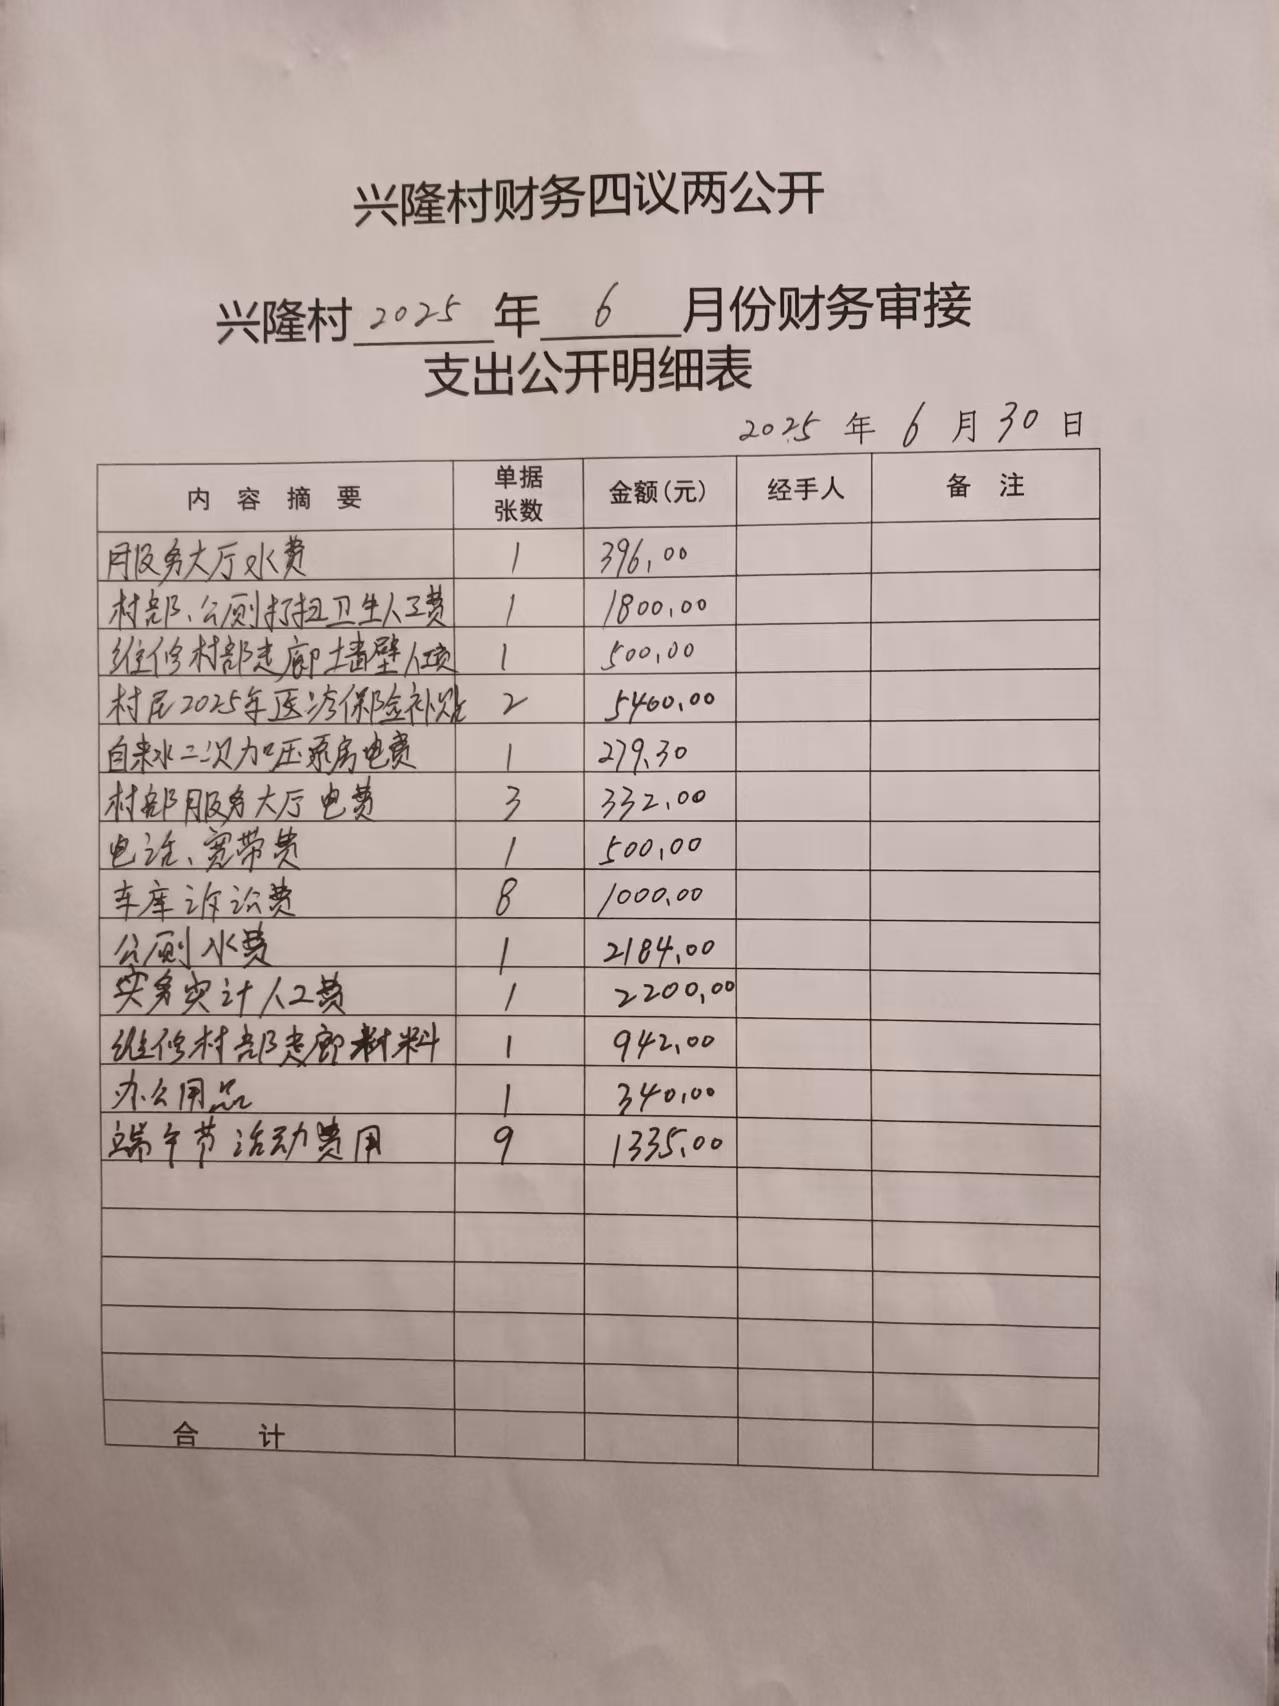 兴隆村财务四议两公开
兴隆村2025年6月份财务审接
支出公开明细表
2025年6月30日
内容摘要 单据张数 金额(元) 经手人 备注
服务大厅水费 1 396.00
村部、公厕打扫卫生人工费 1 1800.00
维修村部走廊墙壁人工费 1 500.00
村民2025年医疗保险补贴 2 5460.00
自来水二次加压泵房电费 1 279.30
村部服务大厅电费 3 332.00
电话、宽带费 1 500.00
车库诉讼费 8 1000.00
公厕水费 1 2184.00
人工费 1 2200.00
维修村部走廊材料 1 942.00
办公用品 1 340.00
端午节活动费用 9 1335.00
合计